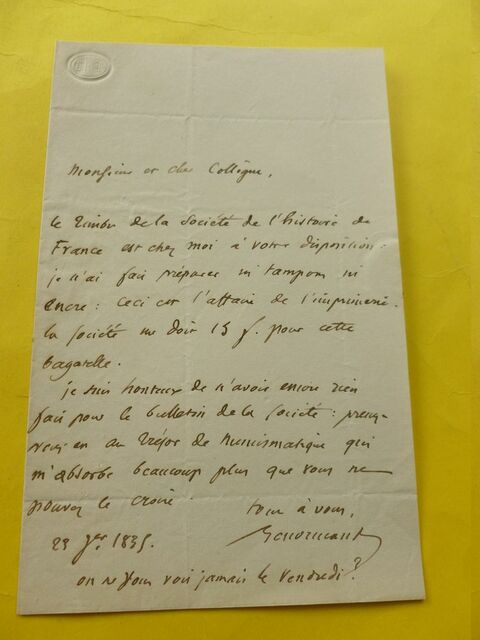 Monsieur et cher Collègue,
le timbre de la Société de l'histoire de
France est chez moi à votre disposition :
je n'ai fait préparer ni tampon ni
encre : ceci est l'affaire de l'imprimerie.
la Société me doit 15 f. pour cette
bagatelle.
je suis honteux de n'avoir encore rien
fait pour le bulletin de la Société : prenez-
vous en au trésor de numismatique qui
m'absorbe beaucoup plus que vous ne
pouvez le croire.
tout à vous,
Lenormant
23 Jer 1835.
on ne vous voit jamais le vendredi ?